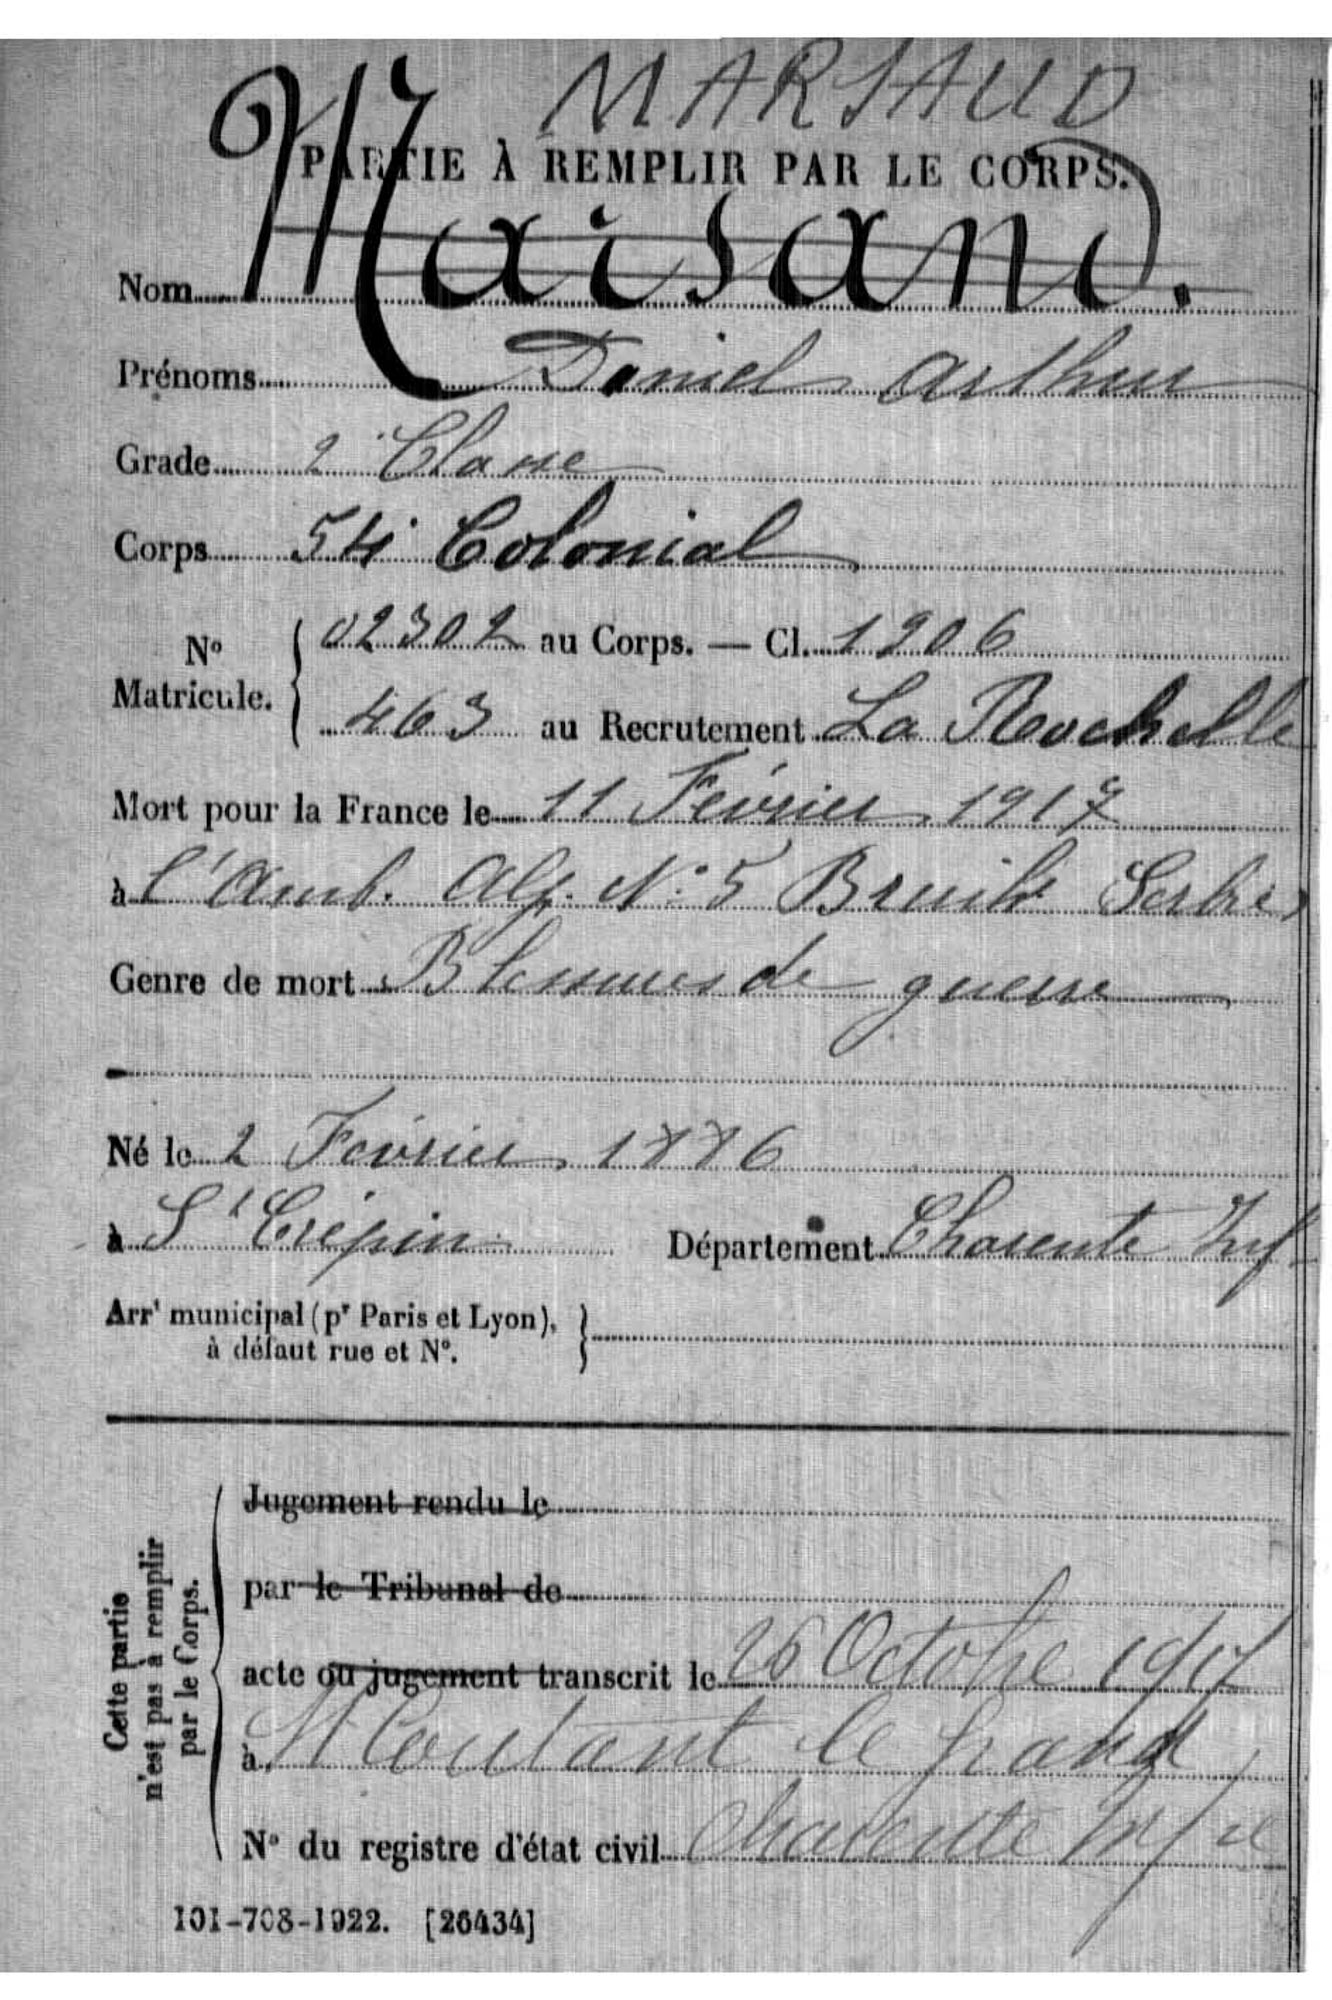 MARSAUD
PARTIE À REMPLIR PAR LE CORPS.
Nom Maisand.
Prénoms Daniel Arthur
Grade 2e Classe
Corps 54e Colonial
No Matricule. 02302 au Corps. — Cl. 1906
463 au Recrutement La Rochelle
Mort pour la France le 11 Février 1917
à l'Amb. Alp. No 5 Serbie
Genre de mort Blessures de guerre
Né le 2 Février 1886
à St Crépin Département Charente Inf
Arrt municipal (pr Paris et Lyon),
à défaut rue et No.
Cette partie
n'est pas à remplir
par le Corps.
Jugement rendu le
par le Tribunal de
acte ou jugement transcrit le 26 Octobre 1917
à St Coutant le grand
No du registre d'état civil Charente Infre
101-708-1922. [26434]